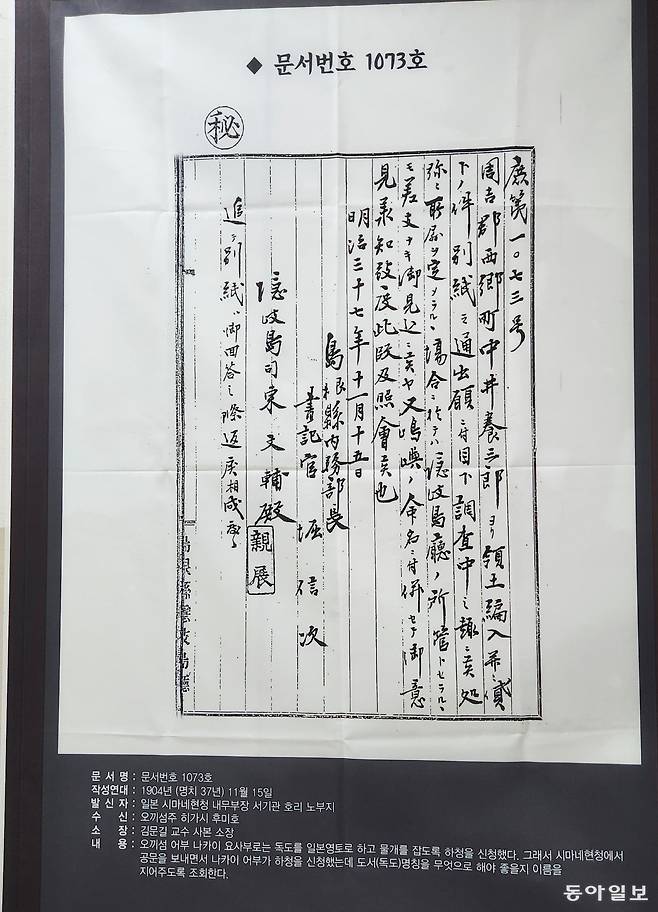 ◆ 문서번호 1073호
秘
庶第一〇七三号
周吉郡西郷町中井養三郎ヨリ領土編入并ニ貸
下ノ件別紙之通出願ニ付目下調査中之趣ニ候処
弥々所属ヲ定メラルヽ場合ニ於テハ隠岐島廳ノ所管トセラルヽ
モ差支ナキ御見込ニ候ヤ又島嶼ノ命名ニ付併セテ御意
見承知致度此段及照會候也
明治三十七年十一月十五日
島根縣内務部長
書記官 堀信次
隠岐島司東文輔殿
親展
追テ別紙ハ御回答之際返戻相成度
島根縣隠岐島廳
문 서 명 : 문서번호 1073호
작성연대 : 1904년 (명치 37년) 11월 15일
발 신 자 : 일본 시마네현청 내무부장 서기관 호리 노부지
수 신 : 오끼섬주 히가시 후미호
소 장 : 김문길 교수 사본 소장
내 용 : 오끼섬 어부 나카이 요사부로는 독도를 일본영토로 하고 물개를 잡도록 하청을 신청했다. 그래서 시마네현청에서
공문을 보내면서 나카이 어부가 하청을 신청했는데 도서(독도)명칭을 무엇으로 해야 좋을지 이름을
지어주도록 조회한다.
동아일보